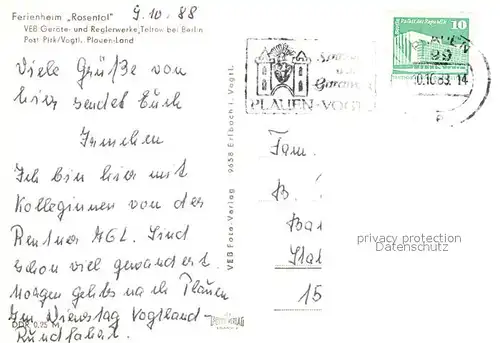 Ferienheim „Rosental"
VEB Geräte- und Reglerwerke, Teltow bei Berlin
Post Pirk/Vogtl. Plauen-Land
9.10.88
Viele Grüße von
hier sendet Euch
Irmchen
Ich bin hier mit
Kolleginnen von der
Rentner AGL. Sind
schon viel gewandert.
Morgen gehts nach Plauen
Im Dienstag Vogtland-
Rundfahrt.
DDR 0,25 M
VEB Foto-Verlag 9658 Erlbach i. Vogtl.
PLAUEN · VOGTL
10
10.10.88.14
Fam.
B.
Ba
Sta
15
privacy protection
Datenschutz